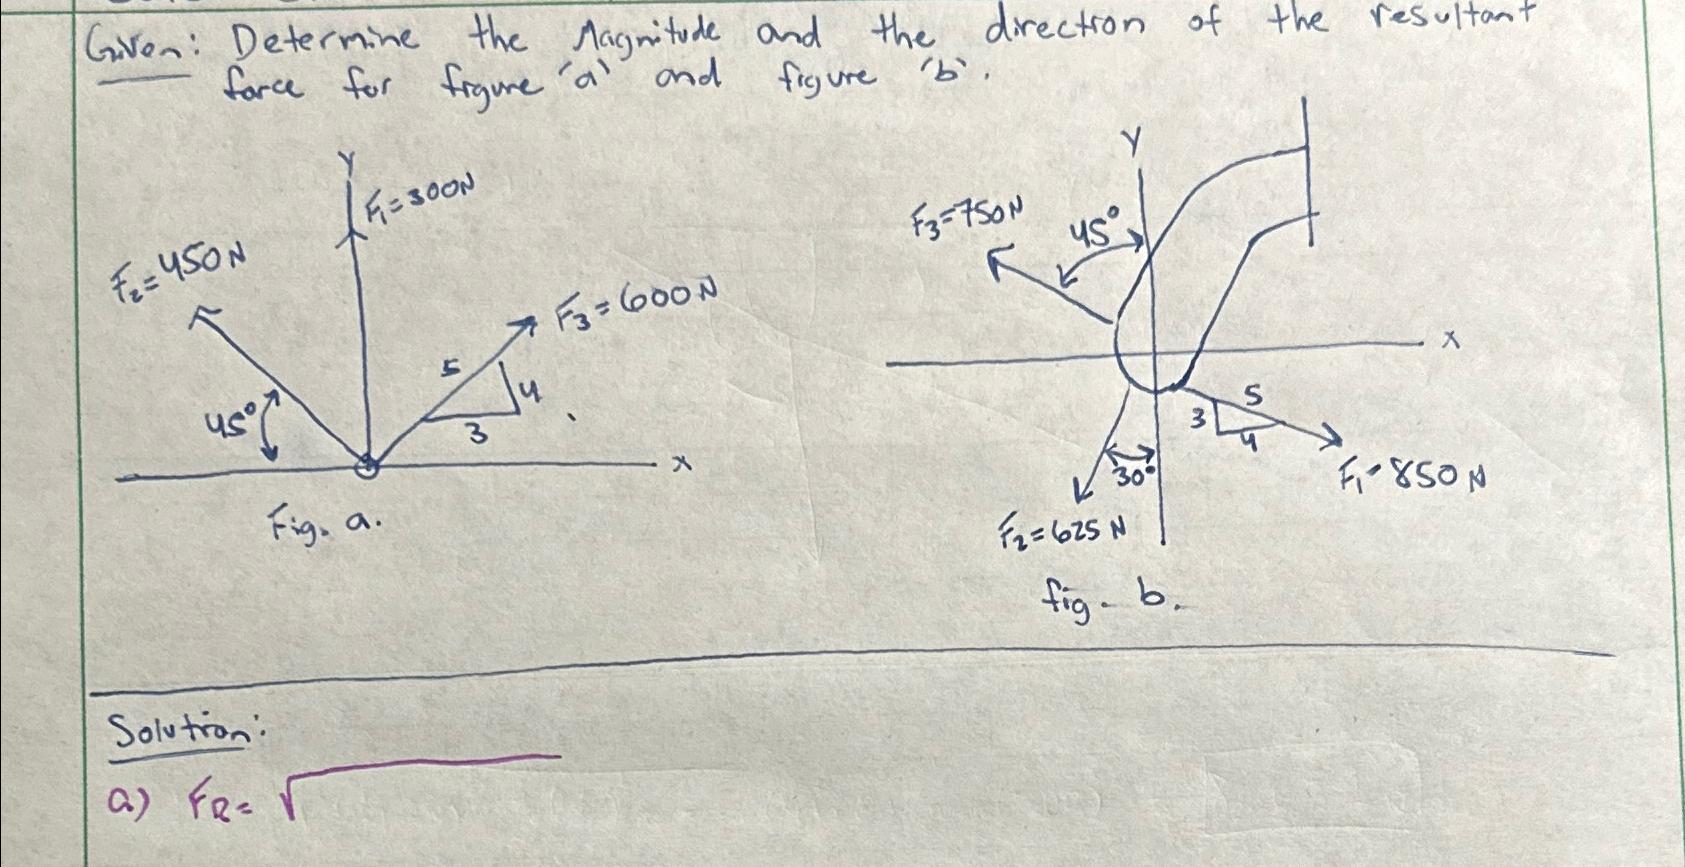 Given: Determine the Magnitude and the direction of the resultant
force for figure 'a' and figure 'b'.
Y
F₁=300N
F₂=450N
F₃=600N
5
4
3
45°
x
Fig. a.
Y
F₃=750N
45°
x
5
3
4
30°
F₁=850N
F₂=625N
fig. b.
Solution:
a) FR=√